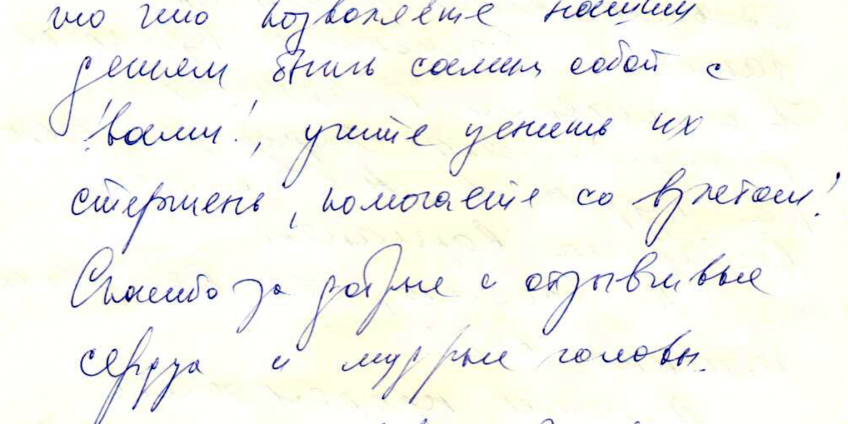 что позволяете нашим
детям быть самим собой с
"вами", учите ценить их
стержень, помогаете со взлётом!
Спасибо за добрые и отзывчивые
сердца и мудрые головы.